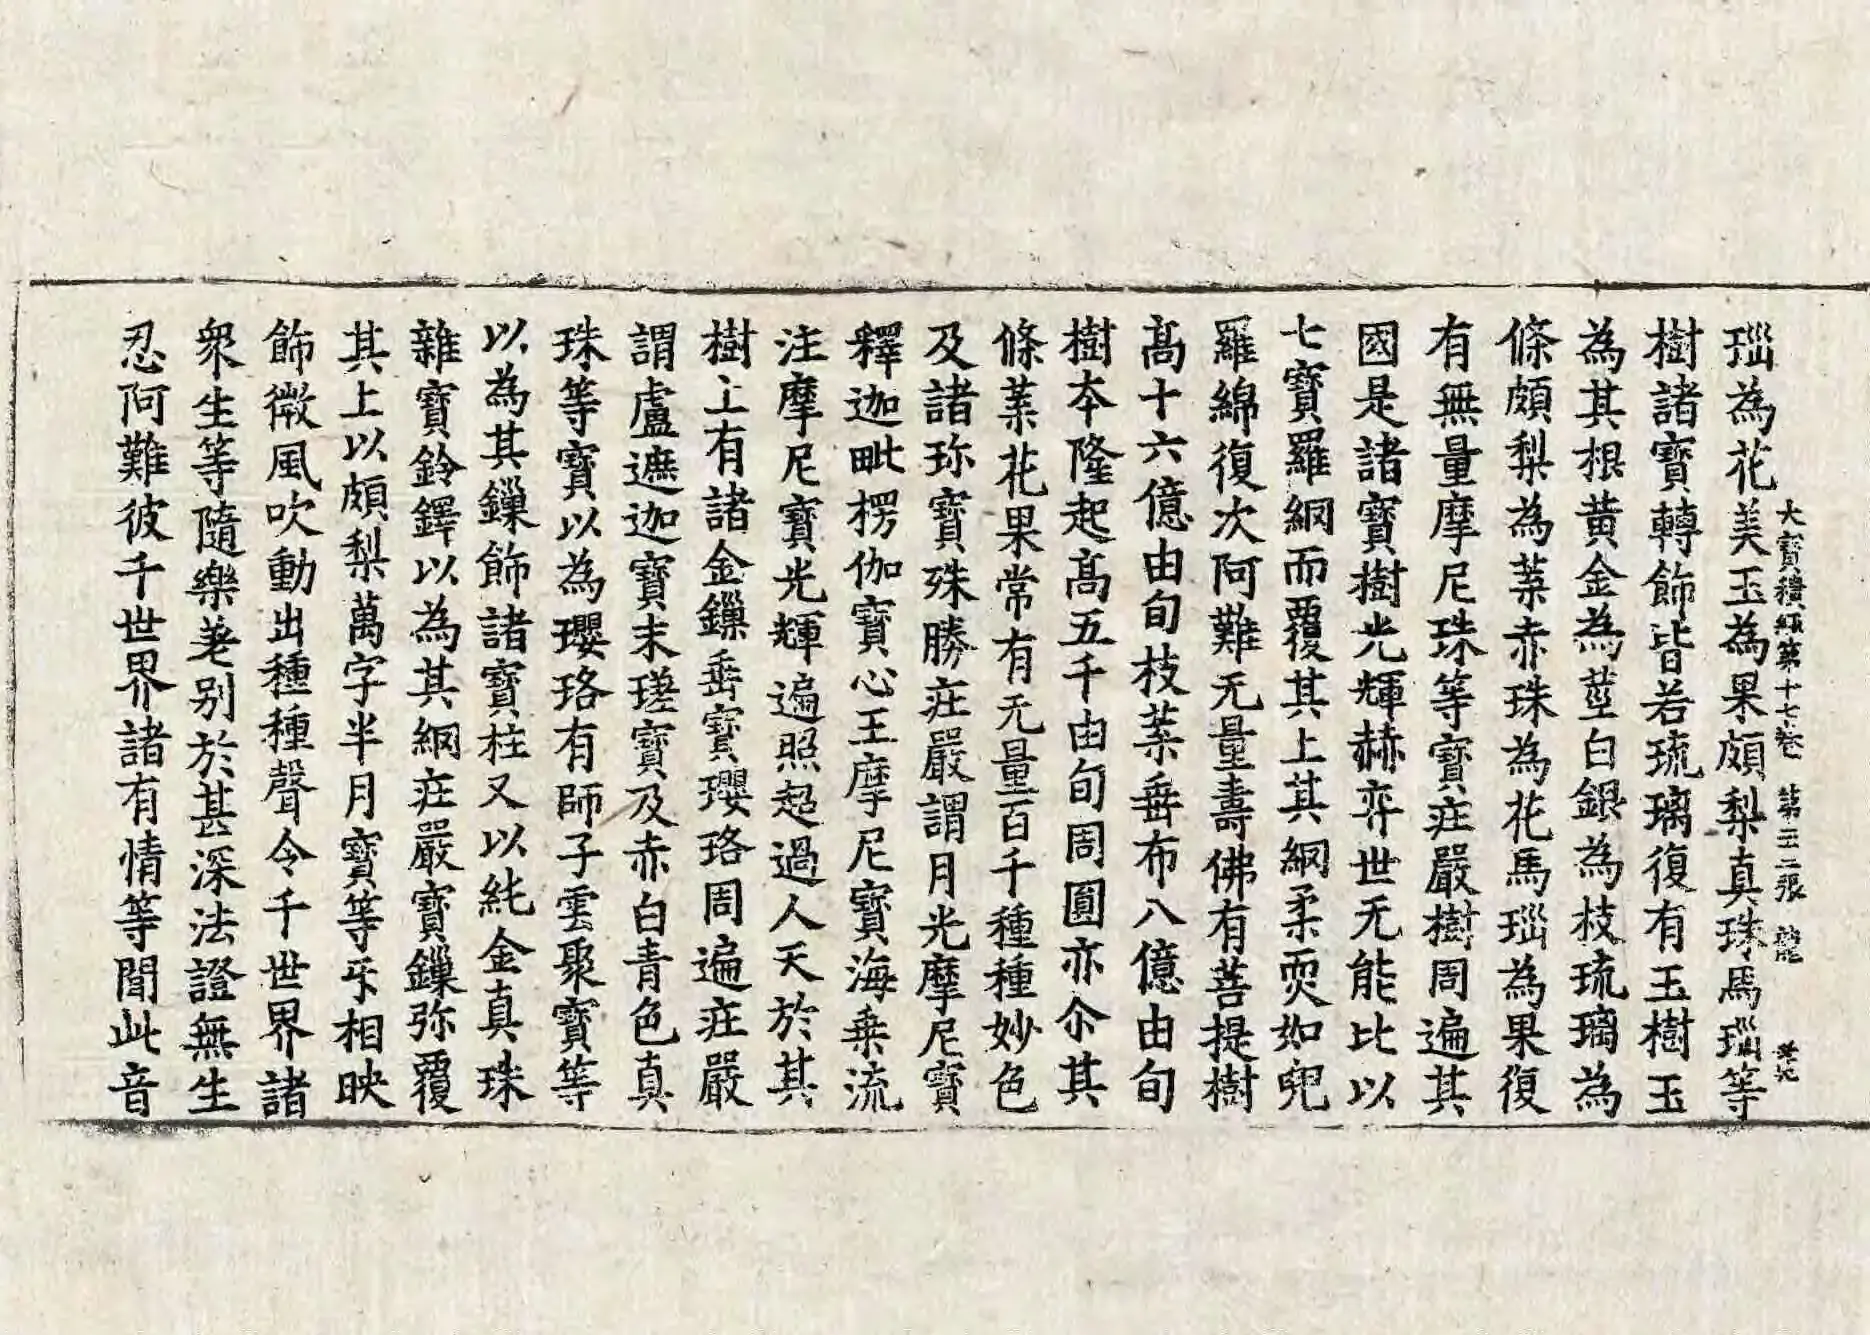 大寶積經第十七卷 第二二張 龍
瑙為花美玉為果頗梨真珠馬瑙等
樹諸寶轉飾皆若琉璃復有玉樹玉
為其根黃金為莖白銀為枝琉璃為
條頗梨為葉赤珠為花馬瑙為果復
有無量摩尼珠等寶莊嚴樹周遍其
國是諸寶樹光輝赫弈世无能比以
七寶羅網而覆其上其網柔耎如兜
羅綿復次阿難无量壽佛有菩提樹
髙十六億由旬枝葉垂布八億由旬
樹本隆起髙五千由旬周圓亦尒其
條葉花果常有无量百千種種妙色
及諸珎寶殊勝莊嚴謂月光摩尼寶
釋迦毗楞伽寶心王摩尼寶海乗流
注摩尼寶光輝遍照超過人天於其
樹上有諸金鏁垂寶瓔珞周遍莊嚴
謂盧遮迦寶末瑳寶及赤白青色真
珠等寶以為瓔珞有師子雲聚寶等
以為其鏁飾諸寶柱又以純金真珠
雜寶鈴鐸以為其網莊嚴寶鏁弥覆
其上以頗梨萬字半月寶等㸦相映
飾微風吹動出種種聲令千世界諸
衆生等隨樂差别於甚深法證無生
忍阿難彼千世界諸有情等聞此音